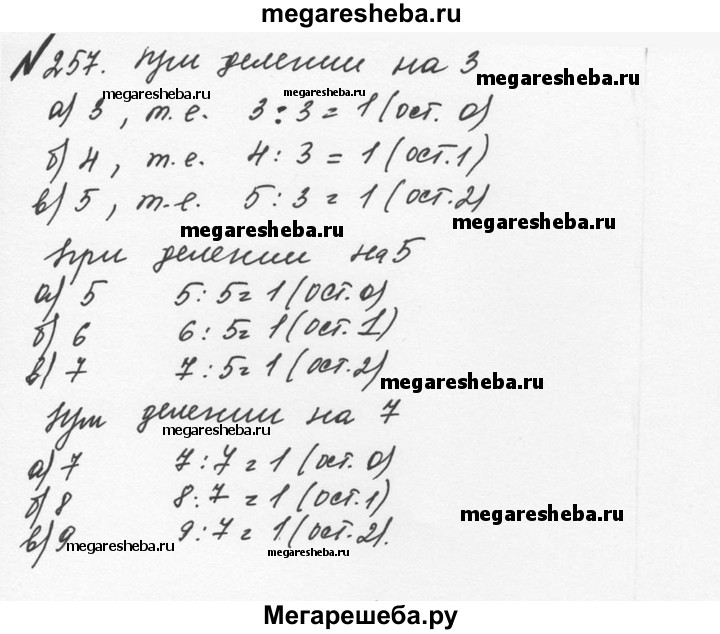 megaresheba.ru
№257. При делении на 3
megaresheba.ru megaresheba.ru
а) 3, т.е. 3 : 3 = 1 (ост. 0)
б) 4, т.е. 4 : 3 = 1 (ост. 1)
в) 5, т.е. 5 : 3 = 1 (ост. 2)
megaresheba.ru megaresheba.ru
при делении на 5
а) 5 5 : 5 = 1 (ост. 0)
б) 6 6 : 5 = 1 (ост. 1)
в) 7 7 : 5 = 1 (ост. 2)
megaresheba.ru
при делении на 7
megaresheba.ru
а) 7 7 : 7 = 1 (ост. 0)
б) 8 8 : 7 = 1 (ост. 1)
megaresheba.ru
в) 9 9 : 7 = 1 (ост. 2).
megaresheba.ru megaresheba.ru
Мегарешеба.ру